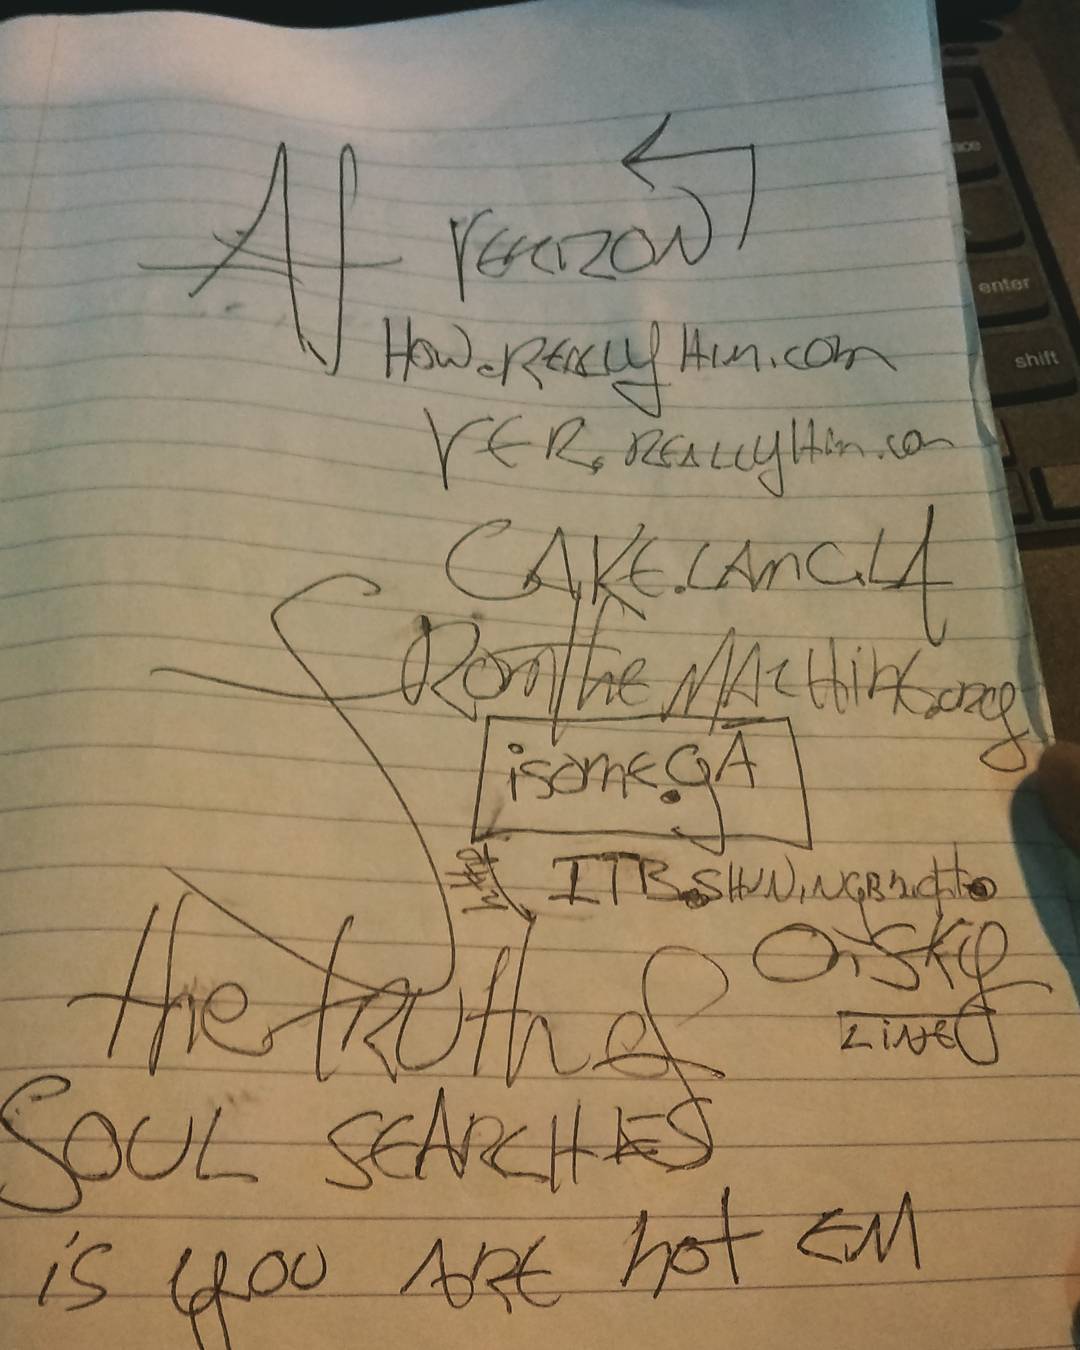 VERIZON
How.REALLYHim.com
VER.REALLYHim.com
CAKE.LAMC.LA
FROMtheMAcHine.org
isome.GA
http
ITB.SHiNiNGBright.
On.SKY
LiNE
the truth of
SOUL SEARCHES
is you ARE not EM
enter
shift